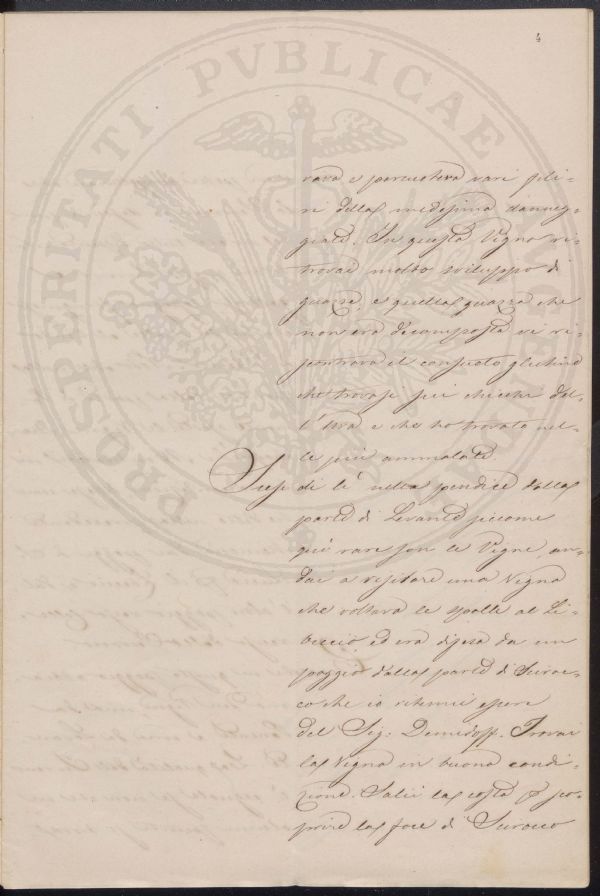 4
PROSPERITATI PVBLICAE AVGENDAE
rava e percuoteva vari fila-
ri della medesima danneg-
giata. In questa Vigna ri-
trovai molto sviluppo di
guazza, e quella guazza che
non era decomposta vi ri-
scontrava il consueto glutine
che trovasi sui chicchi del-
l'Uva e che ho trovato nel-
le più ammalate
Scesi di lì nella pendice dalla
parte di Levante siccome
qui rare son le Vigne, an-
dai a visitare una Vigna
che voltava le spalle al Li-
beccio ed era difesa da un
poggio dalla parte di Sciroc-
co che io ritenni essere
del Sig: Demidoff. Trovai
la Vigna in buona condi-
zione. Salii la costa p sco-
prire la foce di Scirocco